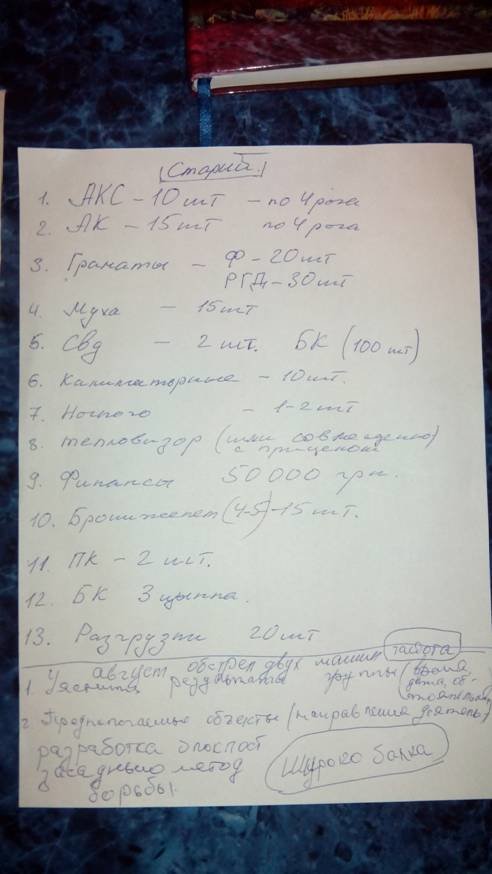 Старий
1. АКС - 10 шт - по 4 рога
2. АК - 15 шт по 4 рога
3. Гранаты - Ф - 20 шт
РГД - 30 шт
4. Муха - 15 шт
5. Свд - 2 шт. БК (100 шт)
6. Калиматорные - 10 шт.
7. Ночного - 1-2 шт
8. тепловизор (или совмещенно)
с прицелом
9. Финансы 50 000 грн.
10. Бронижелет (4-5) - 15 шт.
11. ПК - 2 шт.
12. БК 3 цынка.
13. Разгрузки 20 шт
август обстрел двух машин
1. Уяснить результаты группы (время
дата, об-
2. Предполагаемые объекты (направление деятель)
разработка
засадный метод
борьбы.
балка